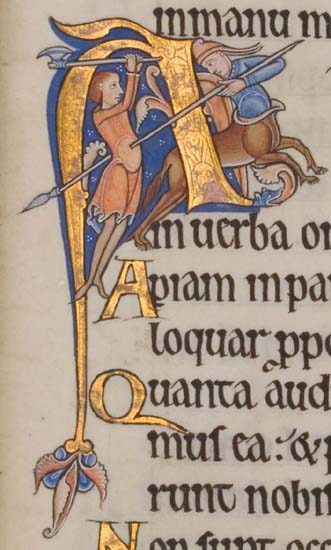 inmanu m
A
in uerba or
Aꝑiam inpa
loquar ꝓpo
Quanta aud
mus ea: & p
runt nobis
Non sunt occ